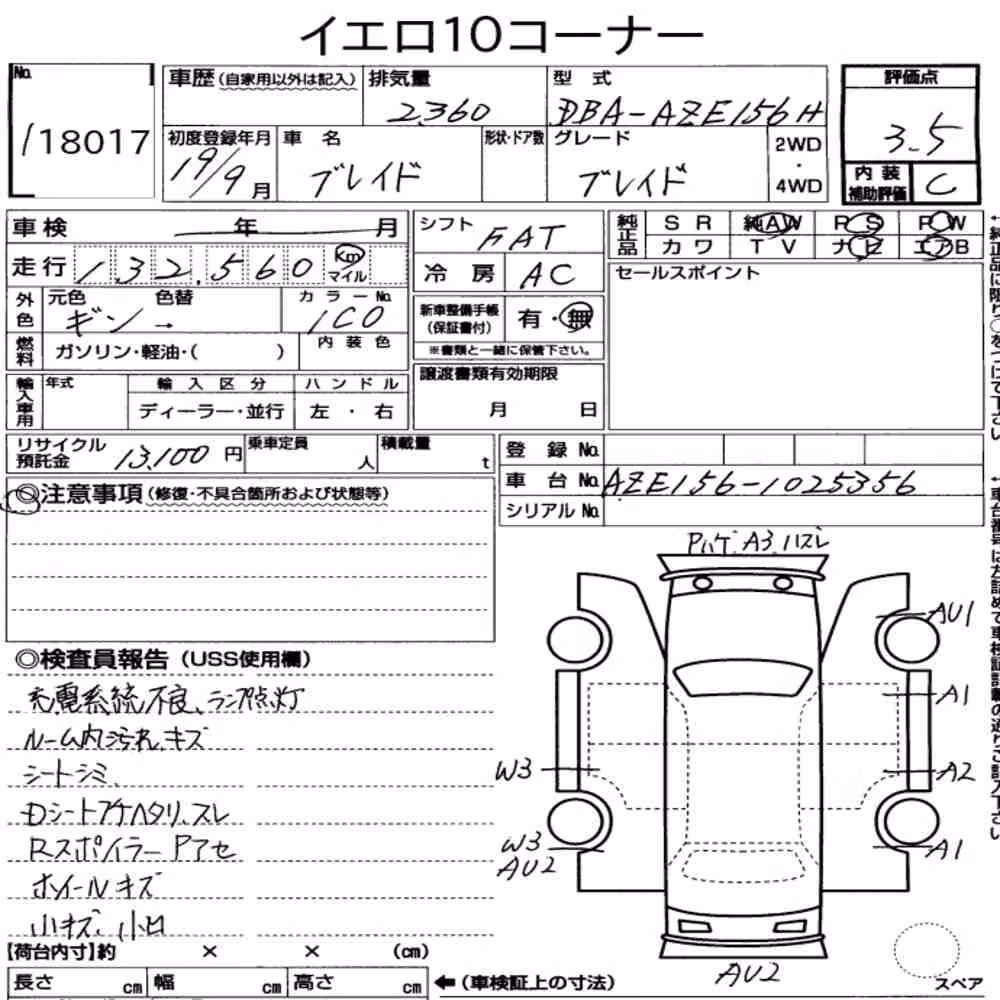 イエロ10コーナー
No. 車歴(自家用以外は記入) 排気量 型式 評価点
118017 2360 DBA-AZE156H 3.5
初度登録年月 車名 形状・ドア数 グレード 2WD・4WD
19/9月 ブレイド ブレイド 内装補助評価 C
車検 年 月 シフト FAT 純正品 SR 純AW PS PW
カワ TV ナビ エアB
走行 132,560 Km マイル 冷房 AC セールスポイント
外色 元色 色替 カラーNo. 新車整備手帳(保証書付) 有・無
ギン → 1C0 ※書類と一緒に保管下さい。
燃料 ガソリン・軽油・( ) 内装色
譲渡書類有効期限
月 日
輸入車用 年式 輸入区分 ハンドル
ディーラー・並行 左・右
リサイクル預託金 13,100円 乗車定員 人 積載量 t
登録No.
車台No. AZE156-1025356
シリアルNo.
◎注意事項(修復・不具合箇所および状態等)
Pハゲ、A3、ハズレ
AU1
◎検査員報告(USS使用欄)
充電系統不良、ランプ点灯
A1
ルーム内汚れ、キズ
W3 A2
シートシミ、
Dシートアナヘタリ、スレ
Rスポイラー Pアセ
W3 A1
AU2
ホイールキズ
小キズ、小凹
【荷台内寸】約 × × (cm)
AU2
長さ cm 幅 cm 高さ cm ←(車検証上の寸法) スペア
↑純正品に限り○をつけて下さい
↑車台番号は左詰めで車検証記載の通りご記入下さい